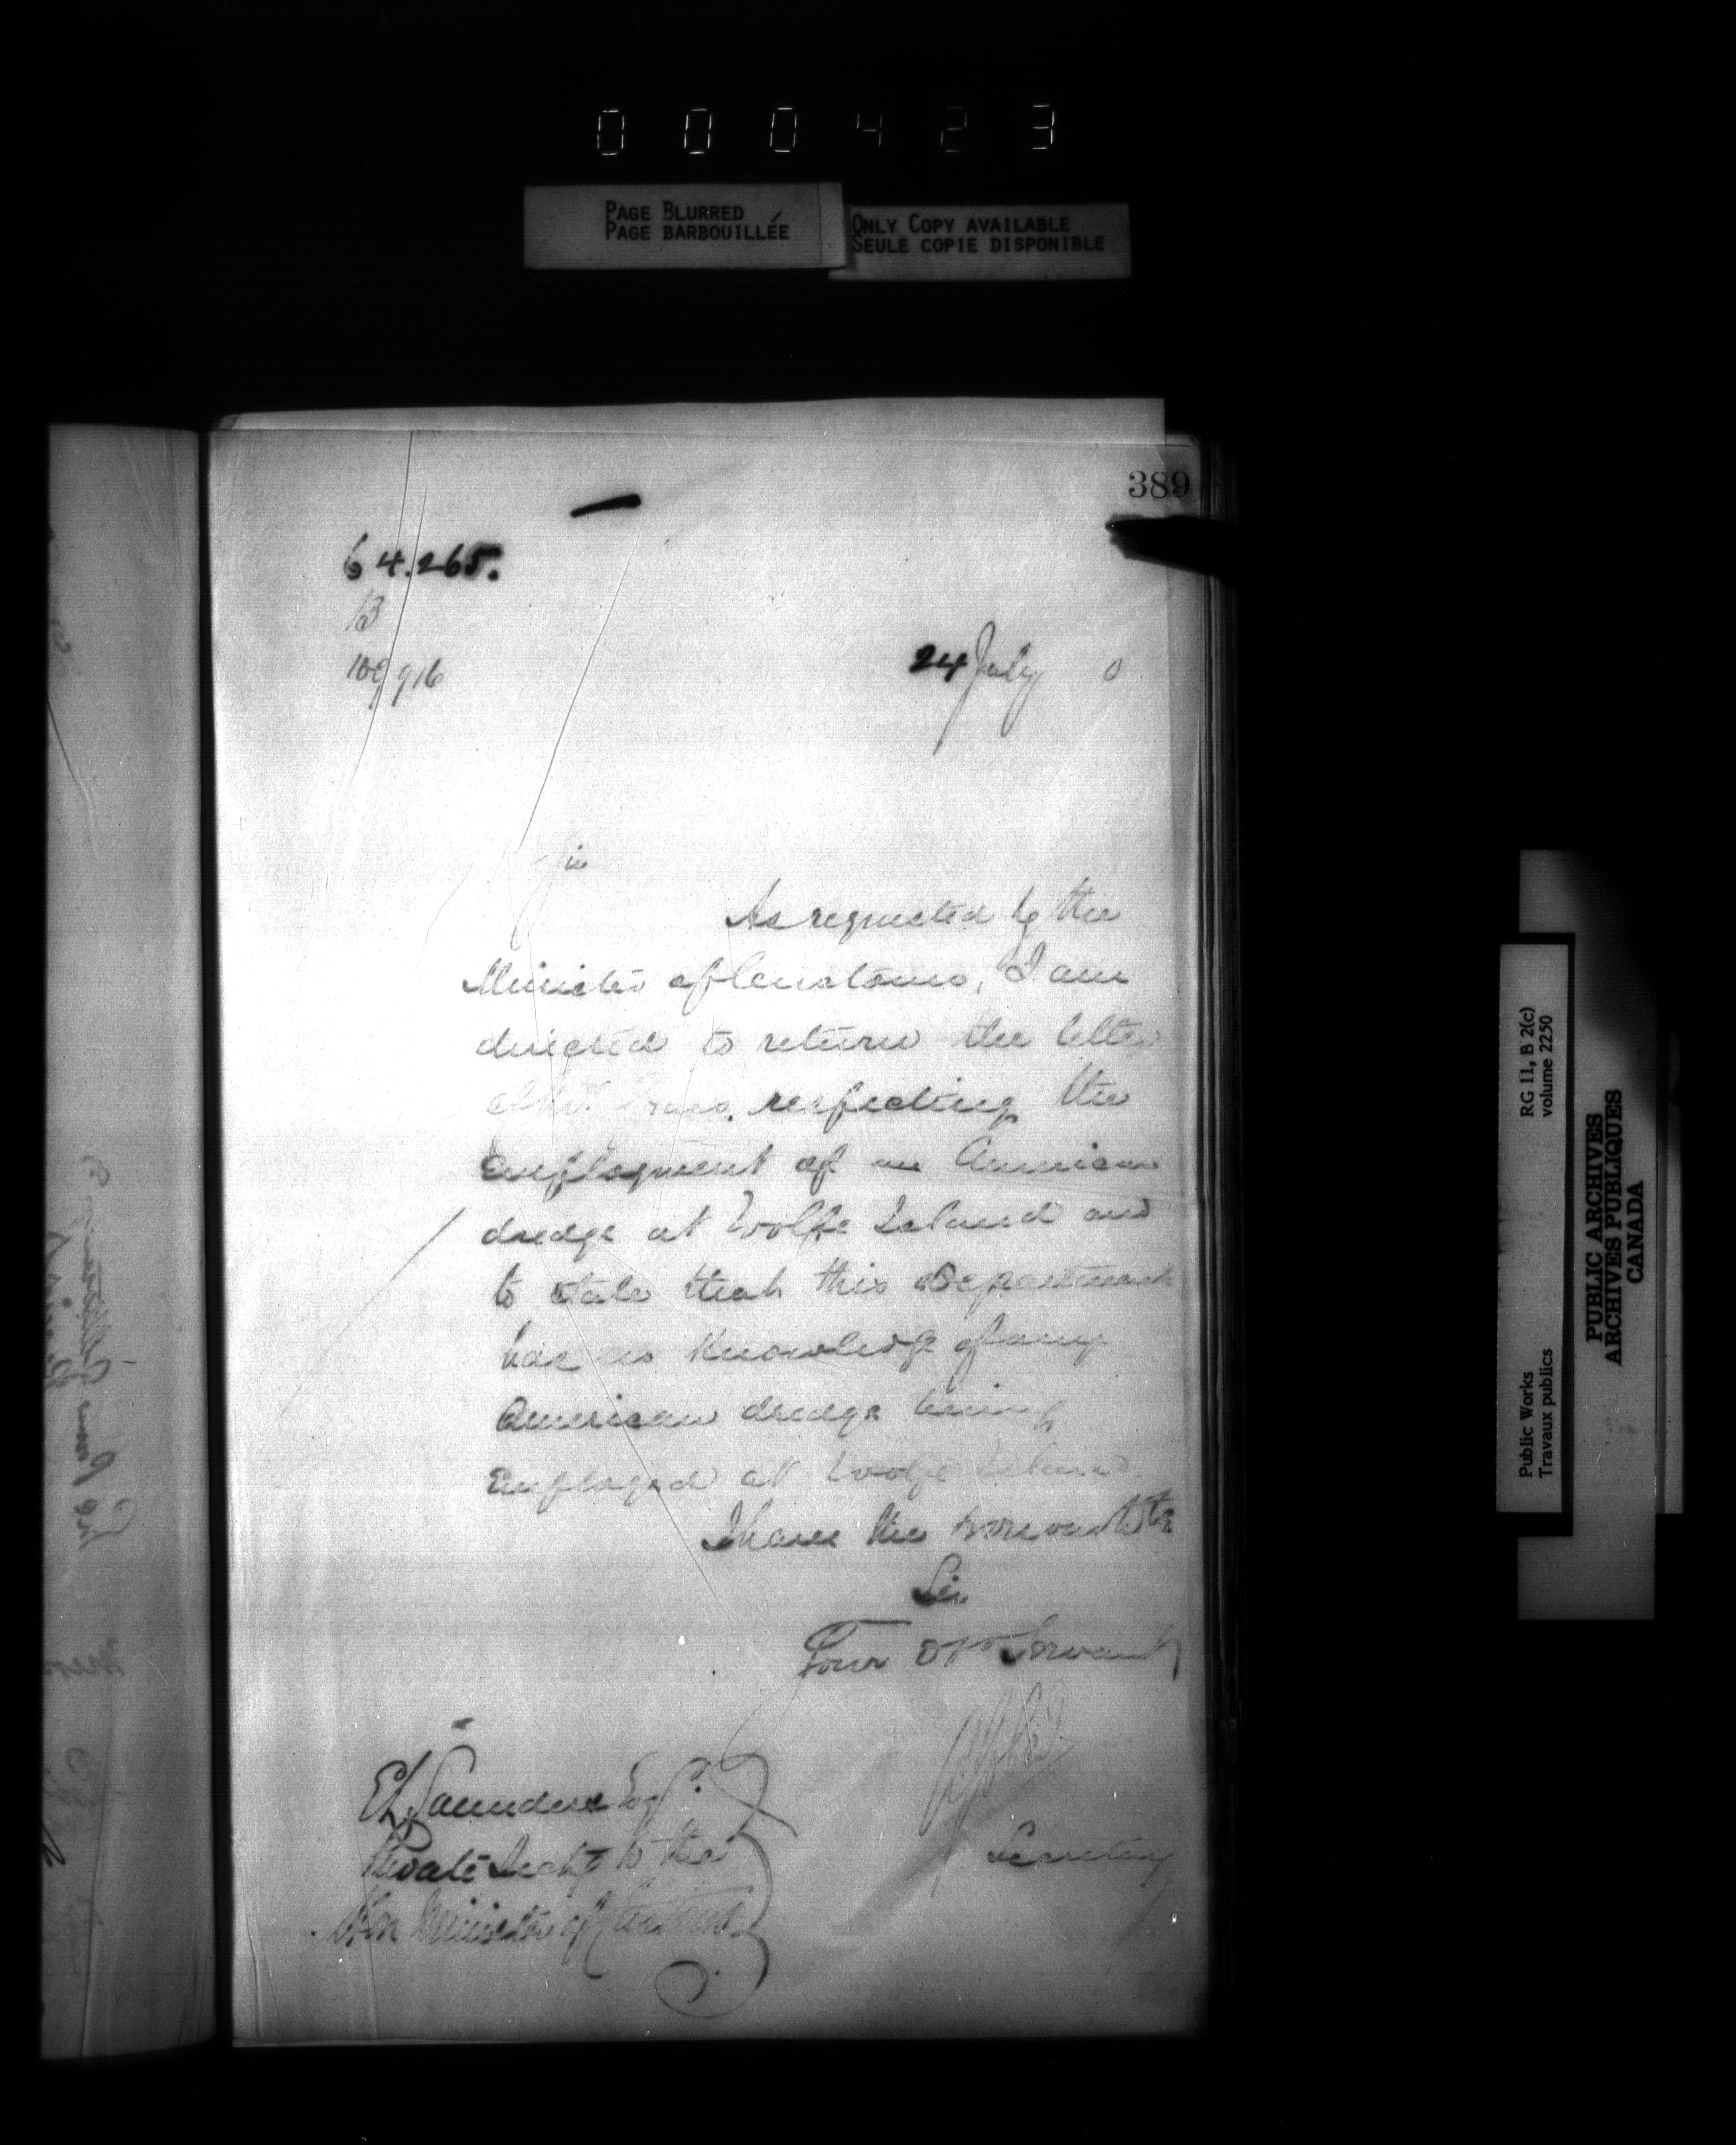 000423
PAGE BLURRED
PAGE BARBOUILLÉE
ONLY COPY AVAILABLE
SEULE COPIE DISPONIBLE
389
64.265.
B
24 July 0
Sir
As requested by the
Minister of Customs, I am
directed to return the letter
respecting the
employment of an American
dredge at Wolfe Island and
to state that this Department
has no knowledge of any
American dredge being
employed at Wolfe Island.
I have the honor to be
Sir
Your Obt Servant
Secretary
E L Saunders Esq.
Private Secty to the
Hon Minister of Customs
RG 11, B 2(c)
volume 2250
Public Works
Travaux publics
PUBLIC ARCHIVES
ARCHIVES PUBLIQUES
CANADA